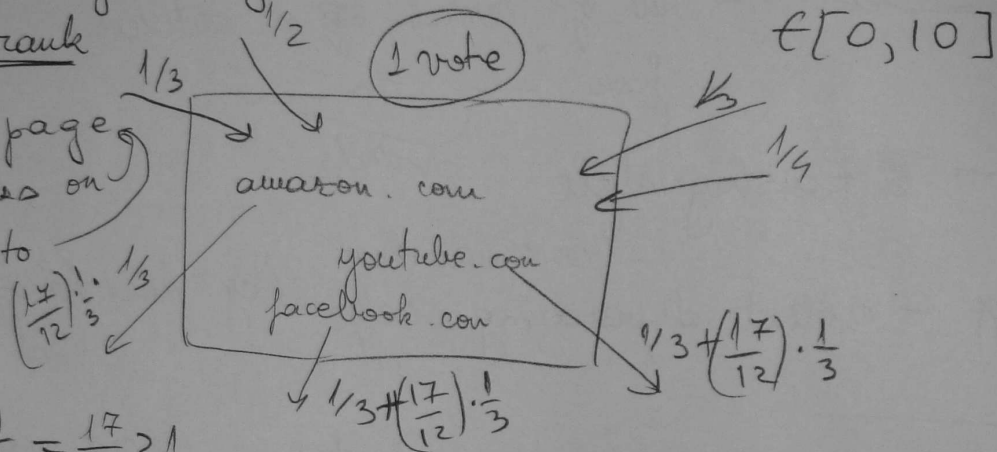 rank
1/3
1/2
1 vote
∈[0,10]
page
on
to
1/3
1/4
amazon.com
youtube.con
facebook.con
1/3
(17/12)·1/3
1/3+(17/12)·1/3
1/3+(17/12)·1/3
= 17